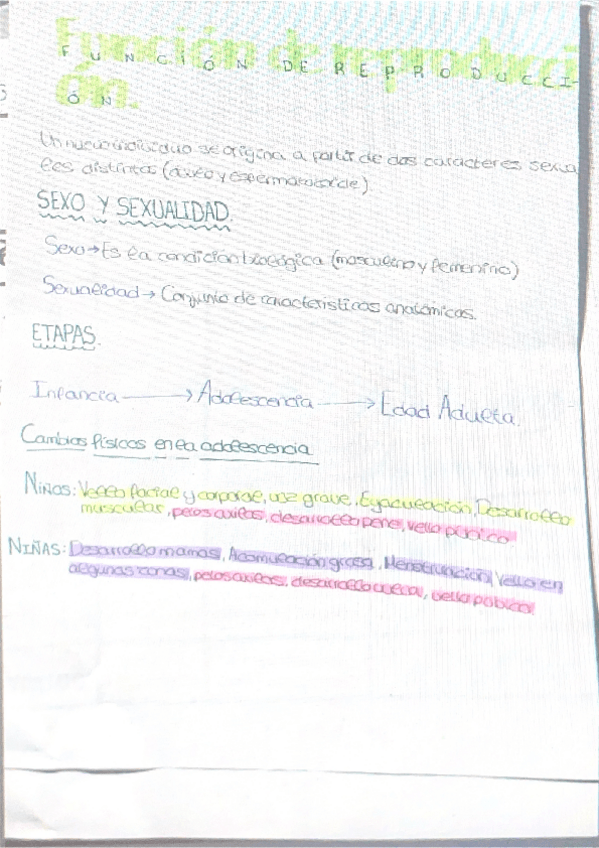 Función de reproducci
ón.
FUNCIÓN DE REPRODUCCI-
ÓN
Un nuevo individuo se origina a partir de dos caracteres sexua
les distintos (óvulo y espermatozoide)
SEXO Y SEXUALIDAD.
Sexo → Es la condición biológica (masculino y femenino)
Sexualidad → Conjunto de características anatómicas.
ETAPAS.
Infancia → Adolescencia → Edad Adulta.
Cambios físicos en la adolescencia
NIÑOS: Vello facial y corporal, voz grave, Eyaculación, Desarrollo
muscular, pelos axilas, desarrollo pene, vello público
NIÑAS: Desarrollo mamas, Acomulación grasa, Menstruación, Vello en
algunas zonas, pelos axilas, desarrollo vulva, vello público